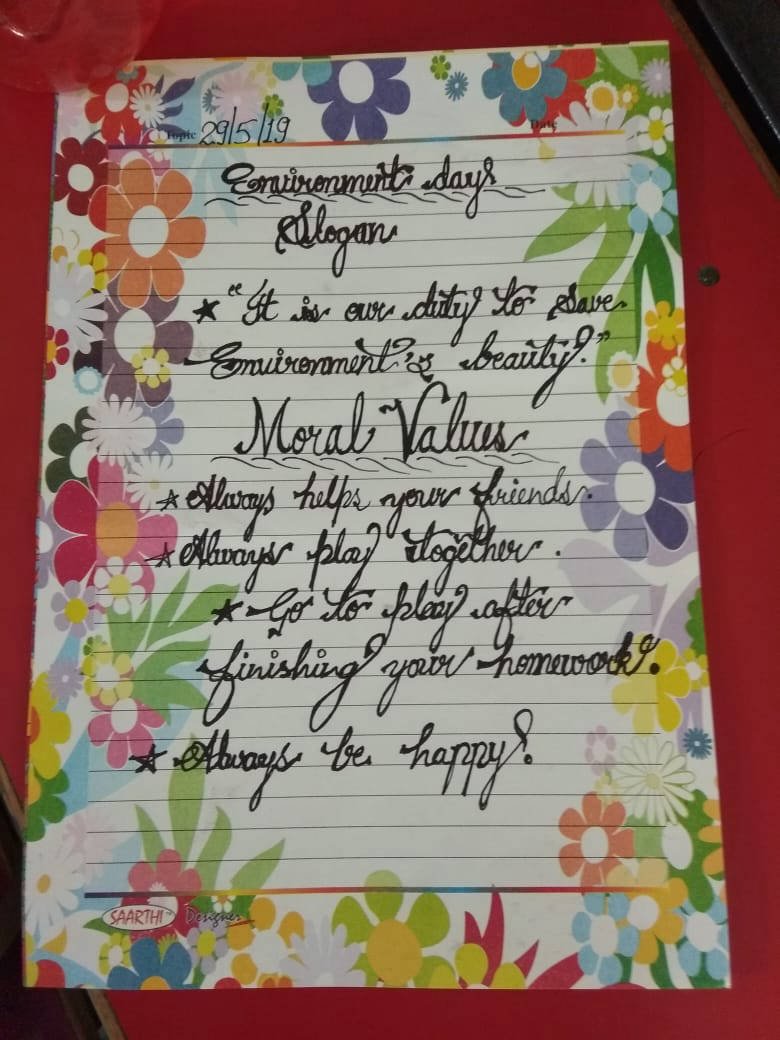 Topic 29/5/19 Date
Environment days
Slogan
★ "It is our duty to save
Environment's beauty."
Moral Values
★ Always helps your friends.
★ Always play together.
★ Go to play after
finishing your homework.
★ Always be happy.
SAARTHI™ Designer